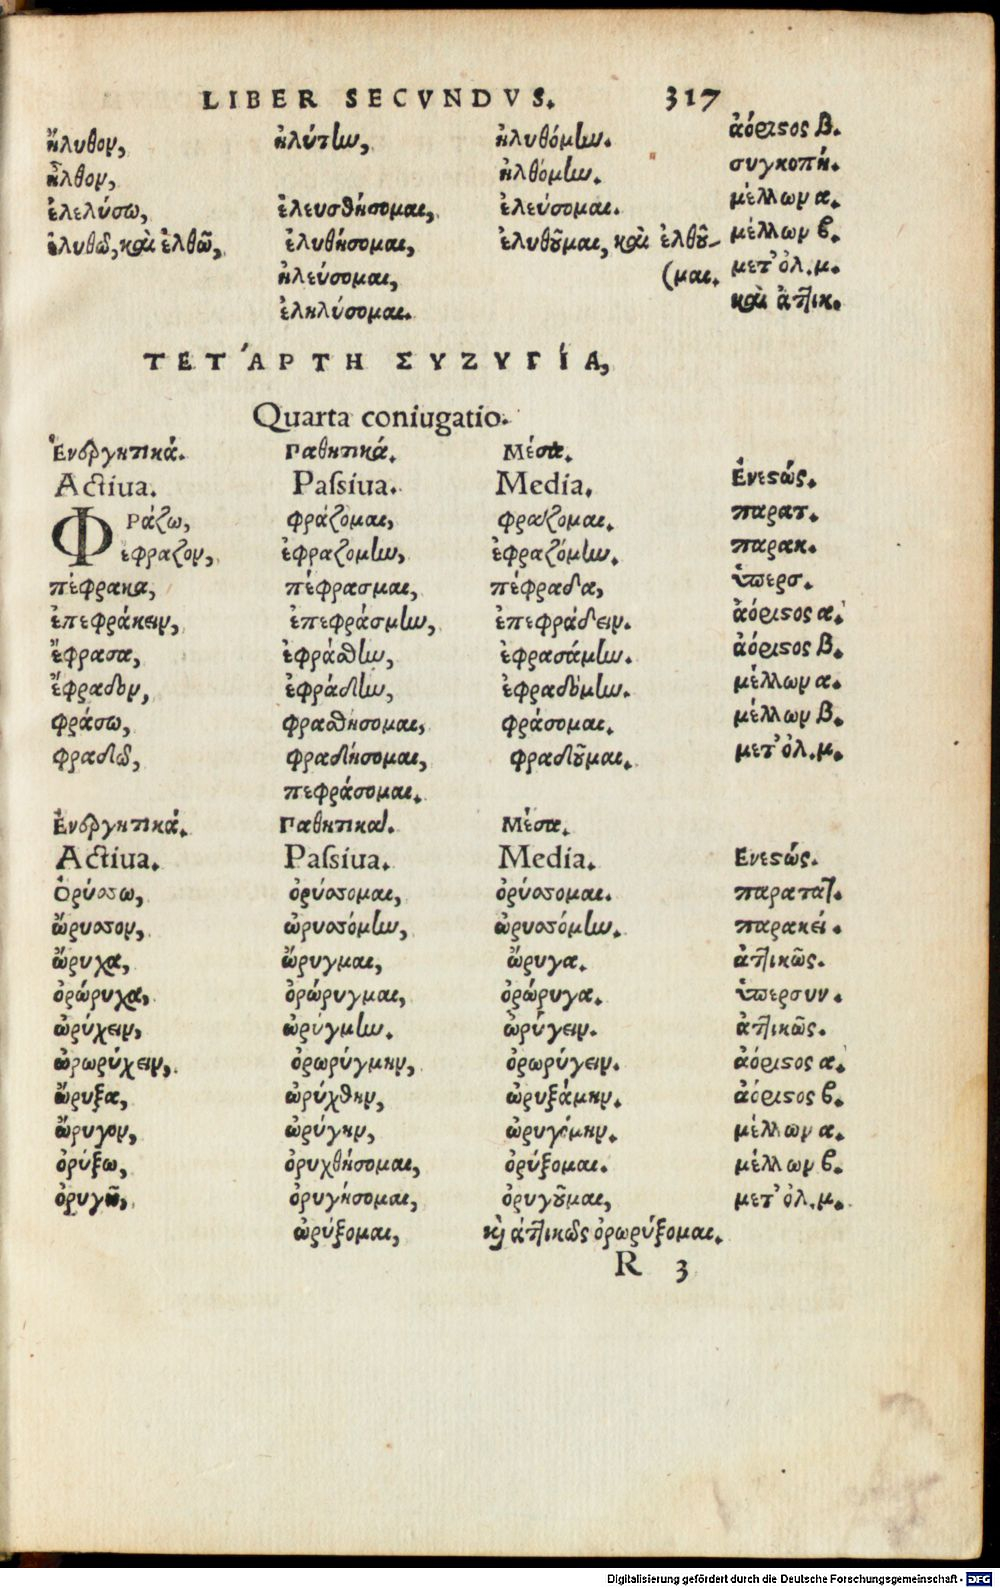 LIBER SECVNDVS. 317
ἤλυθον, ἠλύτην, ἠλυθόμην. ἀόριστος β.
ἦλθον, ἠλθόμην. συγκοπή.
ἐλελύσω, ἐλευσθήσομαι, ἐλεύσομαι. μέλλων α.
ἐλυθῶ, καὶ ἐλθῶ, ἐλυθήσομαι, ἐλυθοῦμαι, καὶ ἐλθοῦ- μέλλων β.
ἠλεύσομαι, (μαι. μετ' ὀλ. μ.
ἐληλύσομαι. καὶ ἀττικ.
ΤΕΤΆΡΤΗ ΣΥΖΥΓΊΑ,
Quarta coniugatio.
Ἐνεργητικά. Παθητικά. Μέσα.
Actiua. Passiua. Media. Ἐνεστώς.
ΦΡάζω, φράζομαι, φράζομαι. παρατ.
ἐφραζον, ἐφραζομην, ἐφραζόμην. παρακ.
πέφρακα, πέφρασμαι, πέφραδα, ὑπερσ.
ἐπεφράκειν, ἐπεφράσμην, ἐπεφράδειν. ἀόριστος α.
ἔφρασα, ἐφράσθην, ἐφρασάμην. ἀόριστος β.
ἔφραδον, ἐφράδην, ἐφραδόμην. μέλλων α.
φράσω, φρασθήσομαι, φράσομαι. μέλλων β.
φραδῶ, φραδήσομαι, φραδοῦμαι. μετ' ὀλ. μ.
πεφράσομαι.
Ἐνεργητικά. Παθητικά. Μέσα.
Actiua. Passiua. Media. Ενεστώς.
Ὀρύσσω, ὀρύσσομαι, ὀρύσσομαι. παρατατ.
ὤρυσσον, ὠρυσσόμην, ὠρυσσόμην. παρακεί.
ὤρυχα, ὤρυγμαι, ὤρυγα. ἀττικῶς.
ὀρώρυχα, ὀρώρυγμαι, ὀρώρυγα. ὑπερσυν.
ὠρύχειν, ὠρύγμην. ὠρύγειν. ἀττικῶς.
ὠρωρύχειν, ὀρωρύγμην, ὀρωρύγειν. ἀόριστος α.
ὤρυξα, ὠρύχθην, ὠρυξάμην. ἀόριστος β.
ὤρυγον, ὠρύγην, ὠρυγόμην. μέλλων α.
ὀρύξω, ὀρυχθήσομαι, ὀρύξομαι. μέλλων β.
ὀρυγῶ, ὀρυγήσομαι, ὀρυγοῦμαι, μετ' ὀλ. μ.
ὠρύξομαι, καὶ ἀττικῶς ὀρωρύξομαι.
R 3
Digitalisierung gefördert durch die Deutsche Forschungsgemeinschaft - DFG